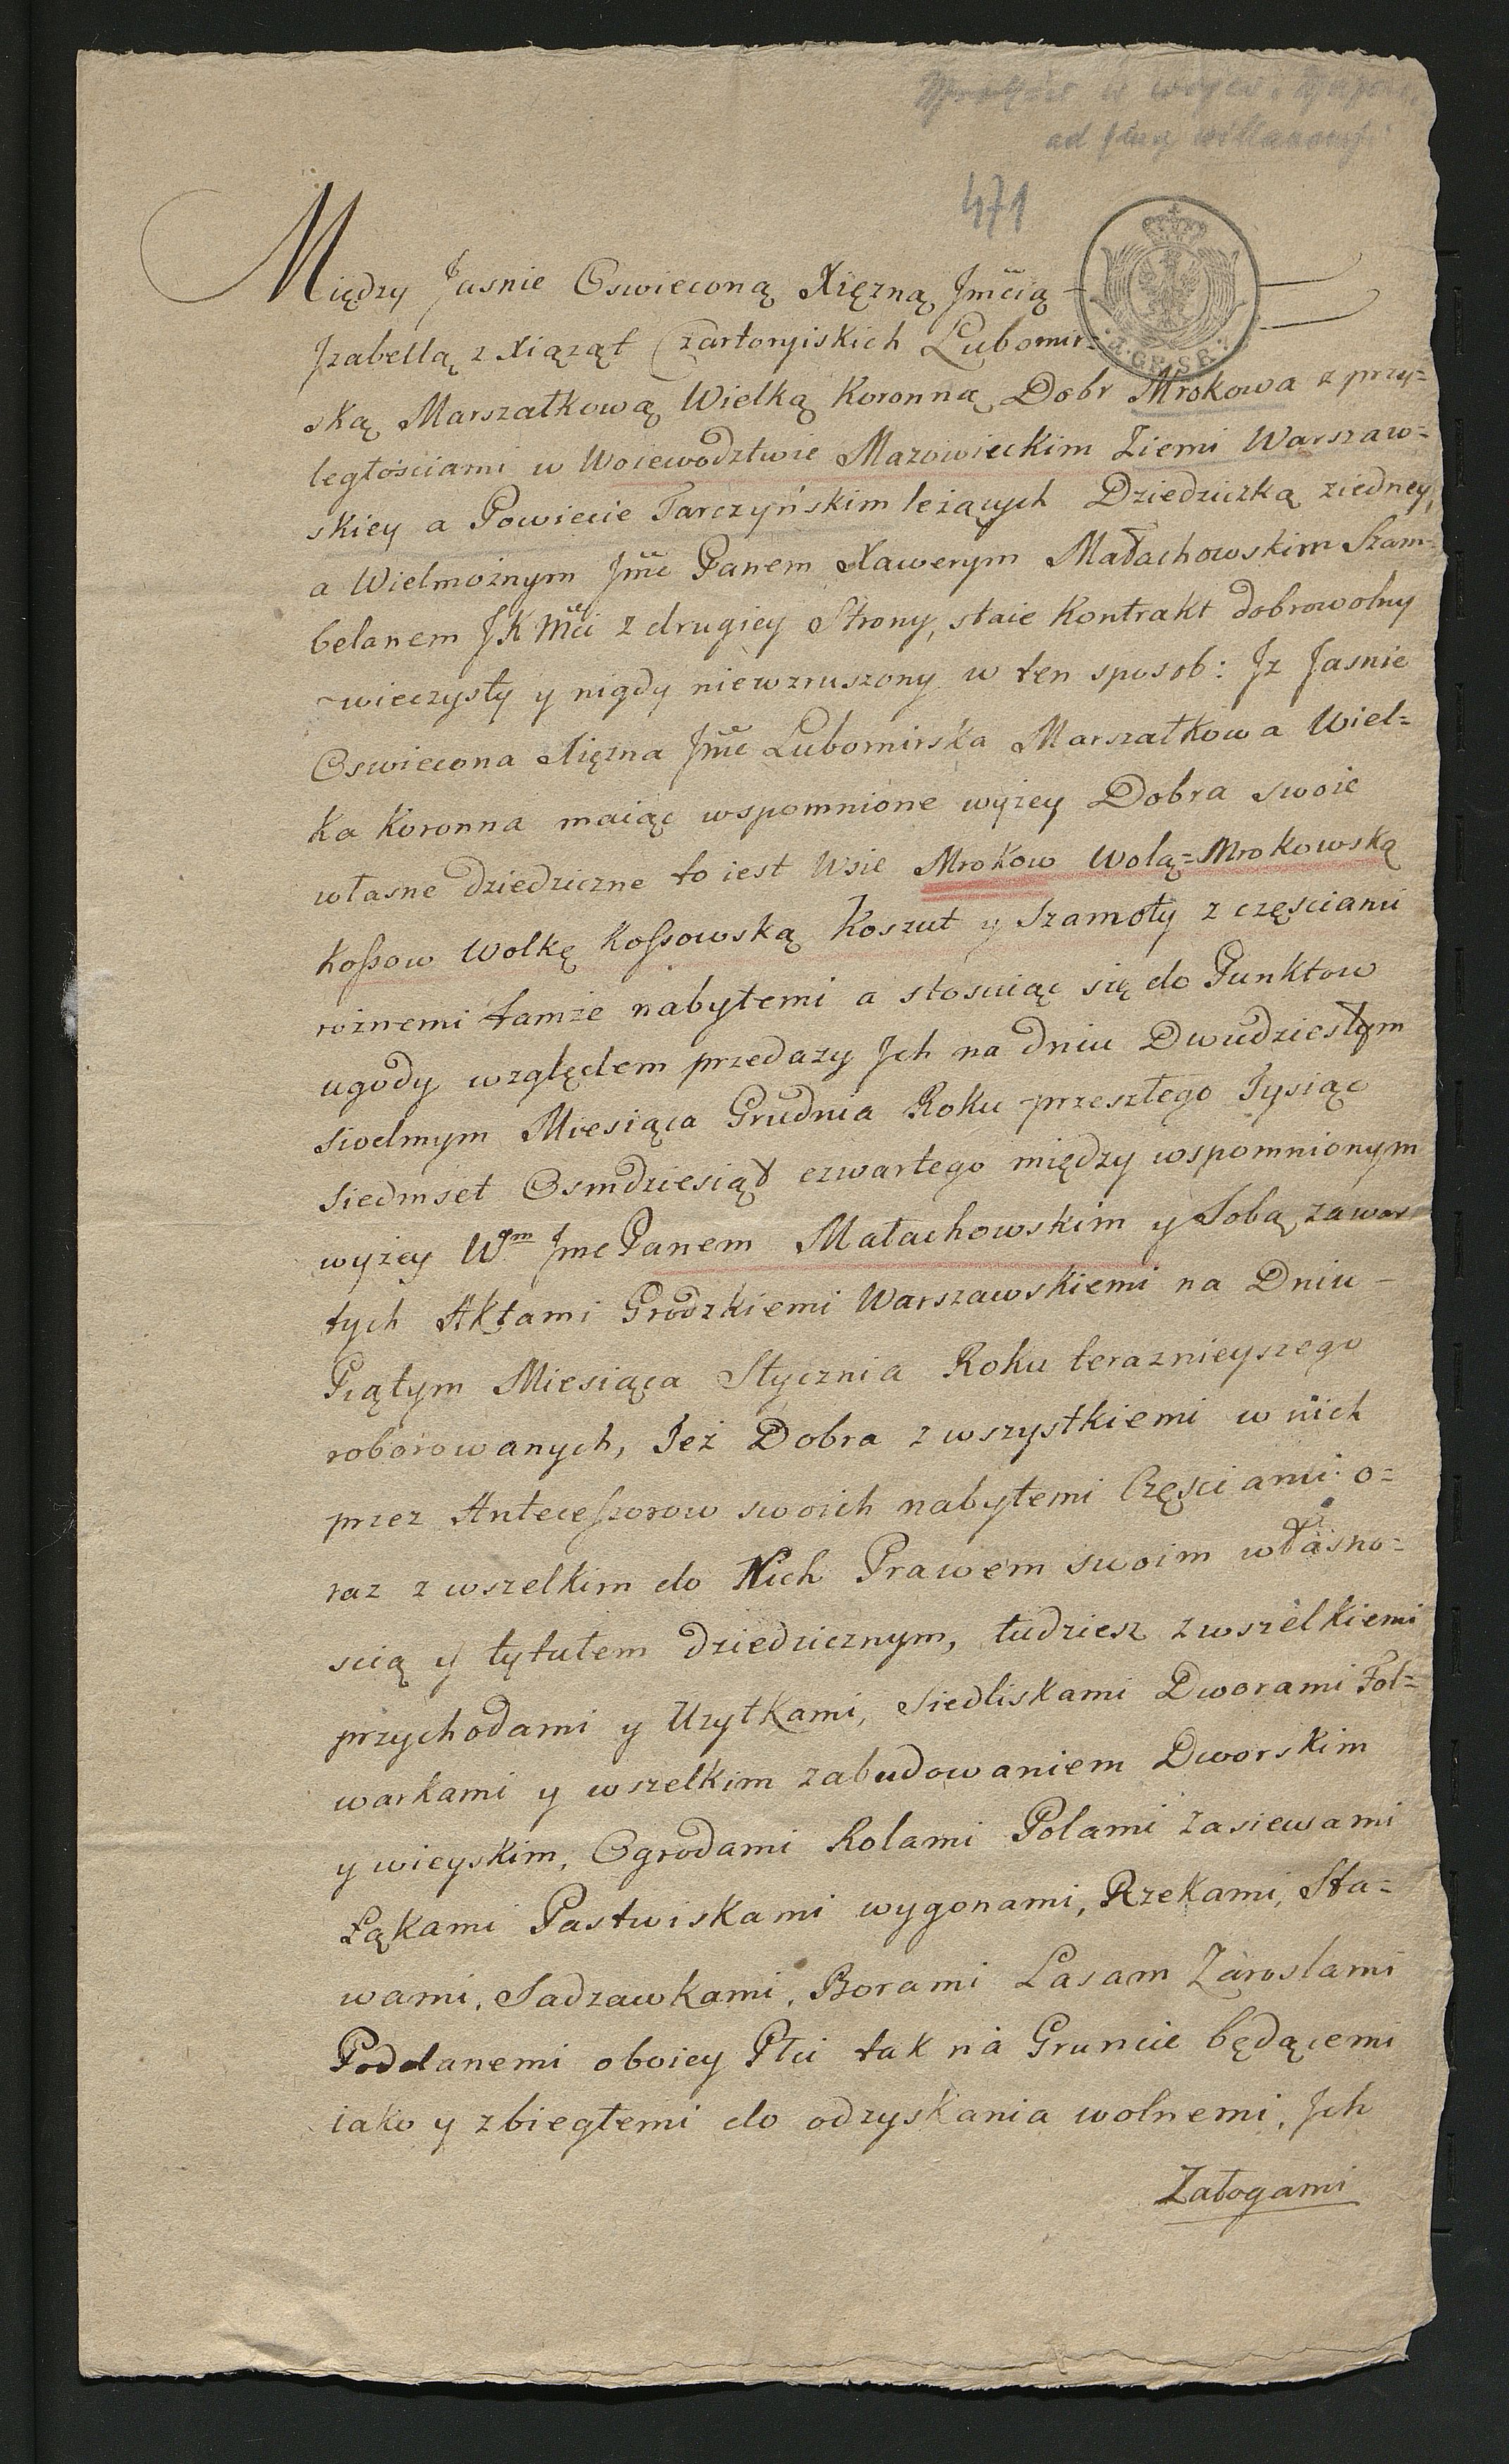 471
Między Jasnie Oswieconą Xięzną Jmcią
Jzabellą z Xiąząt Czartoryiskich Lubomir=
ską Marszałkową Wielką Koronną Dobr Mrokowa z przy=
ległościami w Woiewodztwie Mazowieckim Ziemi Warszaw=
skiey a Powiecie Tarczyńskim leżących Dziedziczką ziedney,
a Wielmożnym Jmc Panem Xawerym Małachowskim Szam=
belanem JKMci z drugiey Strony, staie Kontrakt dobrowolny
wieczysty y nigdy niewzruszony w ten sposob: Jz Jasnie
Oswiecona Xięzna Jmc Lubomirska Marszałkowa Wiel=
ka Koronna maiąc wspomnione wyżey Dobra swoie
własne dziedziczne to iest Wsie Mrokow Wolą=Mrokowską
Koſsow Wolkę Koſsowską Koszut y Szamoty z częściami
rożnemi tamże nabytemi a stosuiąc się do Punktow
ugody względem przedaży Jch na dniu Dwudziestym
Siodmym Miesiąca Grudnia Roku przeszłego Tysiąc
Siedmset Osmdziesiąt czwartego między wspomnionym
wyżey Wm Jmc Panem Małachowskim y Sobą zawar
tych Aktami Grodzkiemi Warszawskiemi na Dniu -
Piątym Miesiąca Stycznia Roku teraznieyszego
roborowanych, Też Dobra z wszystkiemi w nich
przez Anteceſsorow swoich nabytemi Częściami o=
raz z wszelkim do Nich Prawem swoim własno=
scią y tytułem dziedzicznym, tudziesz z wszelkiemi
przychodami y Uzytkami, Siedliskami Dworami Fol=
warkami y wszelkim zabudowaniem Dworskim
y wieyskim, Ogrodami Rolami Polami Zasiewami
Łąkami Pastwiskami wygonami, Rzekami, Sta=
wami, Sadzawkami, Borami Lasam Zaroslami
Poddanemi oboiey Płci tak na Gruncie będącemi
iako y zbiegłemi do odzyskania wolnemi, Jch
Załogami